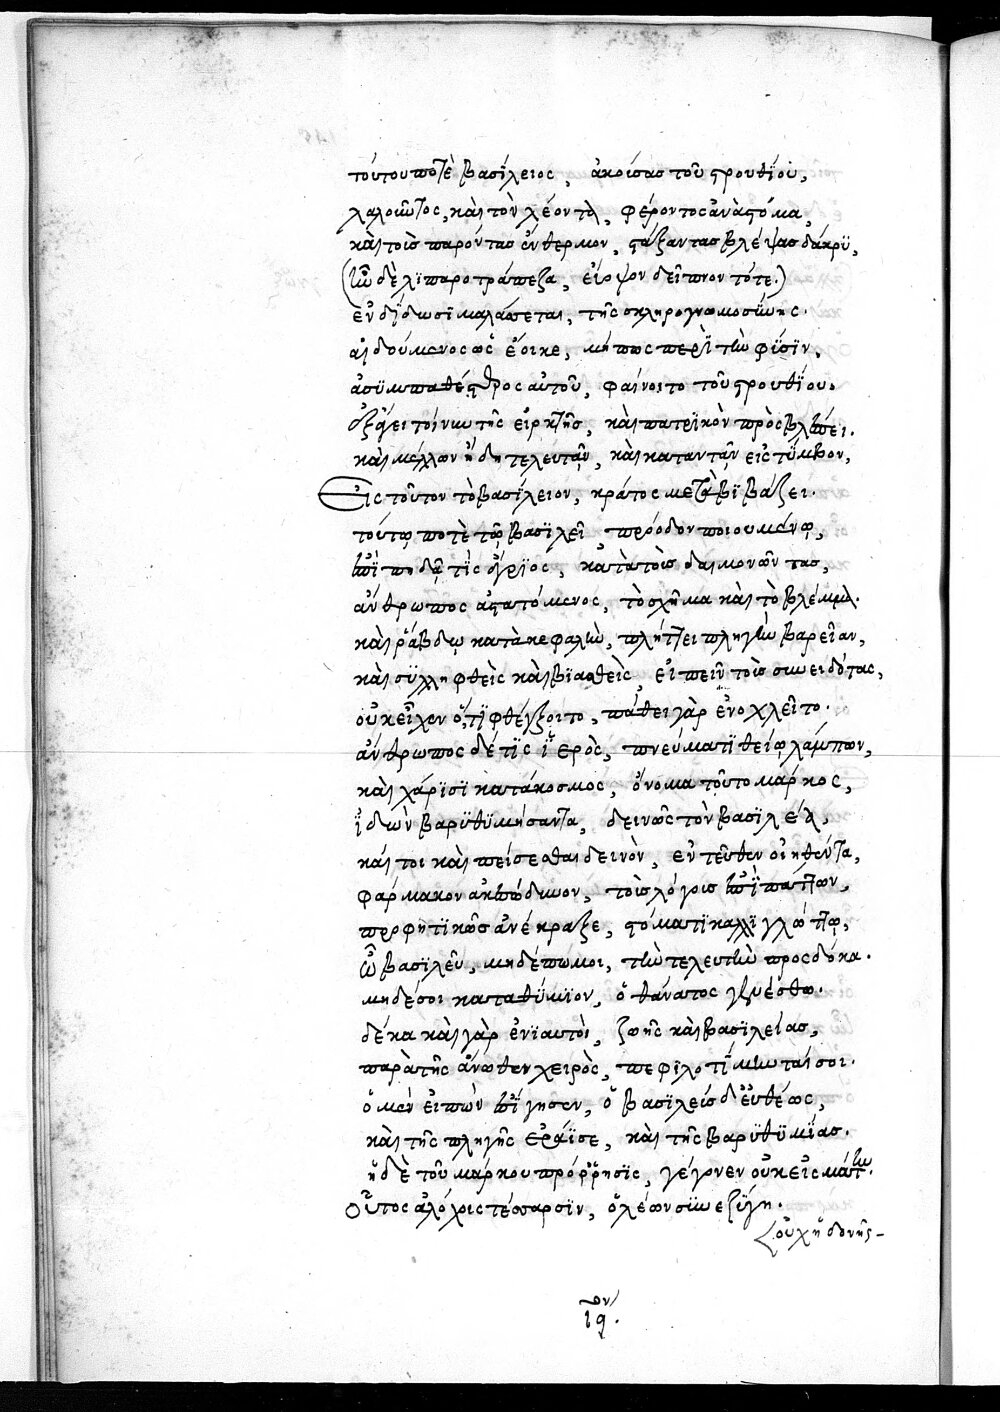 τούτου ποτὲ βασίλειος, ἀκούσας τοῦ στρουθίου,
λαλοῦντος, καὶ τὸν λέοντα, φέροντος ἀνὰ στόμα,
καὶ τοὺς παρόντας ἔνθερμον, στάξαντας βλέψας δάκρυ,
(ἦν δὲ λιπαροτράπεζα, εἴρψον δεῖπνον τότε.)
ἐνδίδωσι μαλάττεται, τῆς σκληρογνωμοσύνης.
αἰδούμενος ὡς ἔοικε, μήπως περὶ τὴν φύσιν,
ἀσυμπαθέστερος αὐτοῦ, φαίνοιτο τοῦ στρουθίου.
ἐξάγει τοίνυν τῆς εἱρκτῆς, καὶ πατρικὸν προσβλέπει.
καὶ μέλλων ἤδη τελευτᾶν, καὶ κατανταν εἰς τύμβον,
Εἰς τοῦτον τὸ βασίλειον, κράτος μεταβιβάζει.
τούτῳ ποτὲ τῷ βασιλεῖ, πρόοδον ποιουμένῳ,
ἐπιπηδᾷ τις ἄγριος, κατὰ τοὺς δαιμονῶντας,
ἄνθρωπος ἀπατώμενος, τὸ σχῆμα καὶ τὸ βλέμμα.
καὶ ῥάβδῳ κατὰ κεφαλὴν, πλήττει πληγὴν βαρεῖαν,
καὶ συλληφθεὶς καὶ βιασθεὶς, εἰπεῖν τοὺς συνειδότας,
οὐκ εἶχεν ὅ,τι φθέγξοιτο, πάθει γὰρ ἐνοχλεῖτο.
ἄνθρωπος δέ τις ἱερὸς, πνεύματι θείῳ λάμπων,
καὶ χάρισι κατάκοσμος, ὄνομα τοῦτο μάρκος,
ἰδὼν βαρυθυμήσαντα, δεινῶς τὸν βασιλέα,
καί τοι καὶ πείσεσθαι δεινὸν, ἐντεῦθεν οἰηθέντα,
φάρμακον ἀκεσώδυνον, τοὺς λόγους ἐπιπάττων,
προφητικῶς ἀνέκραξε, στόματι καλλιγλώττῳ,
ὦ βασιλεῦ, μηδέπω μοι, τὴν τελευτὴν προσδόκα.
μηδέ σοι καταθύμιον, ὁ θάνατος γενέσθω.
δέκα καὶ γὰρ ἐνιαυτοὶ, ζωῆς καὶ βασιλείας,
παρὰ τῆς ἄνωθεν χειρὸς, πεφιλοτίμηνταί σοι.
ὁ μὲν εἰπὼν ἐσίγησεν, ὁ βασιλεὺς δ' εὐθέως,
καὶ τῆς πληγῆς ἐρράϊσε, καὶ τῆς βαρυθυμίας.
ἡ δὲ τοῦ μάρκου πρόρρησις, γέγονεν οὐκ εἰς μάτην.
Οὗτος ἀλόχοις τέσσαρσιν, ὁ λέων συνεζύγη.
οὐχ ἡδονῆς
ιθον.